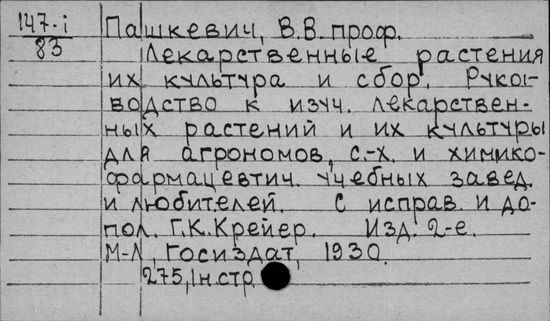 147-i
83
Пашкевич, В.В. проф.
Лекарственные растения
их культура и сбор. Руко-
водство к изуч. лекарствен-
ных растений и их культуры
для агрономов, с.-х. и химико-
фармацевтич. учебных завед.
и любителей. С исправ. и до-
пол. Г.К.Крейер. Изд. 2-е.
М-Л, Госиздат, 1930.
275,1н.стр.